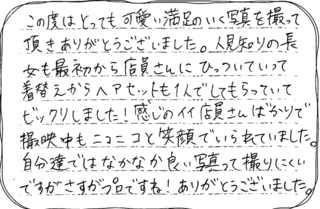 この度はとっても可愛い満足のいく写真を撮って
頂きありがとうございました。人見知りの長
女も最初から店員さんにひっついていって
着替えからヘアセットも1人でしてもらっていて
ビックリしました！感じのイイ店員さんばかりで
撮映中もニコニコと笑顔でいられていました。
自分達ではなかなか良い写真って撮りにくい
ですがさすがプロですね！ありがとうございました。